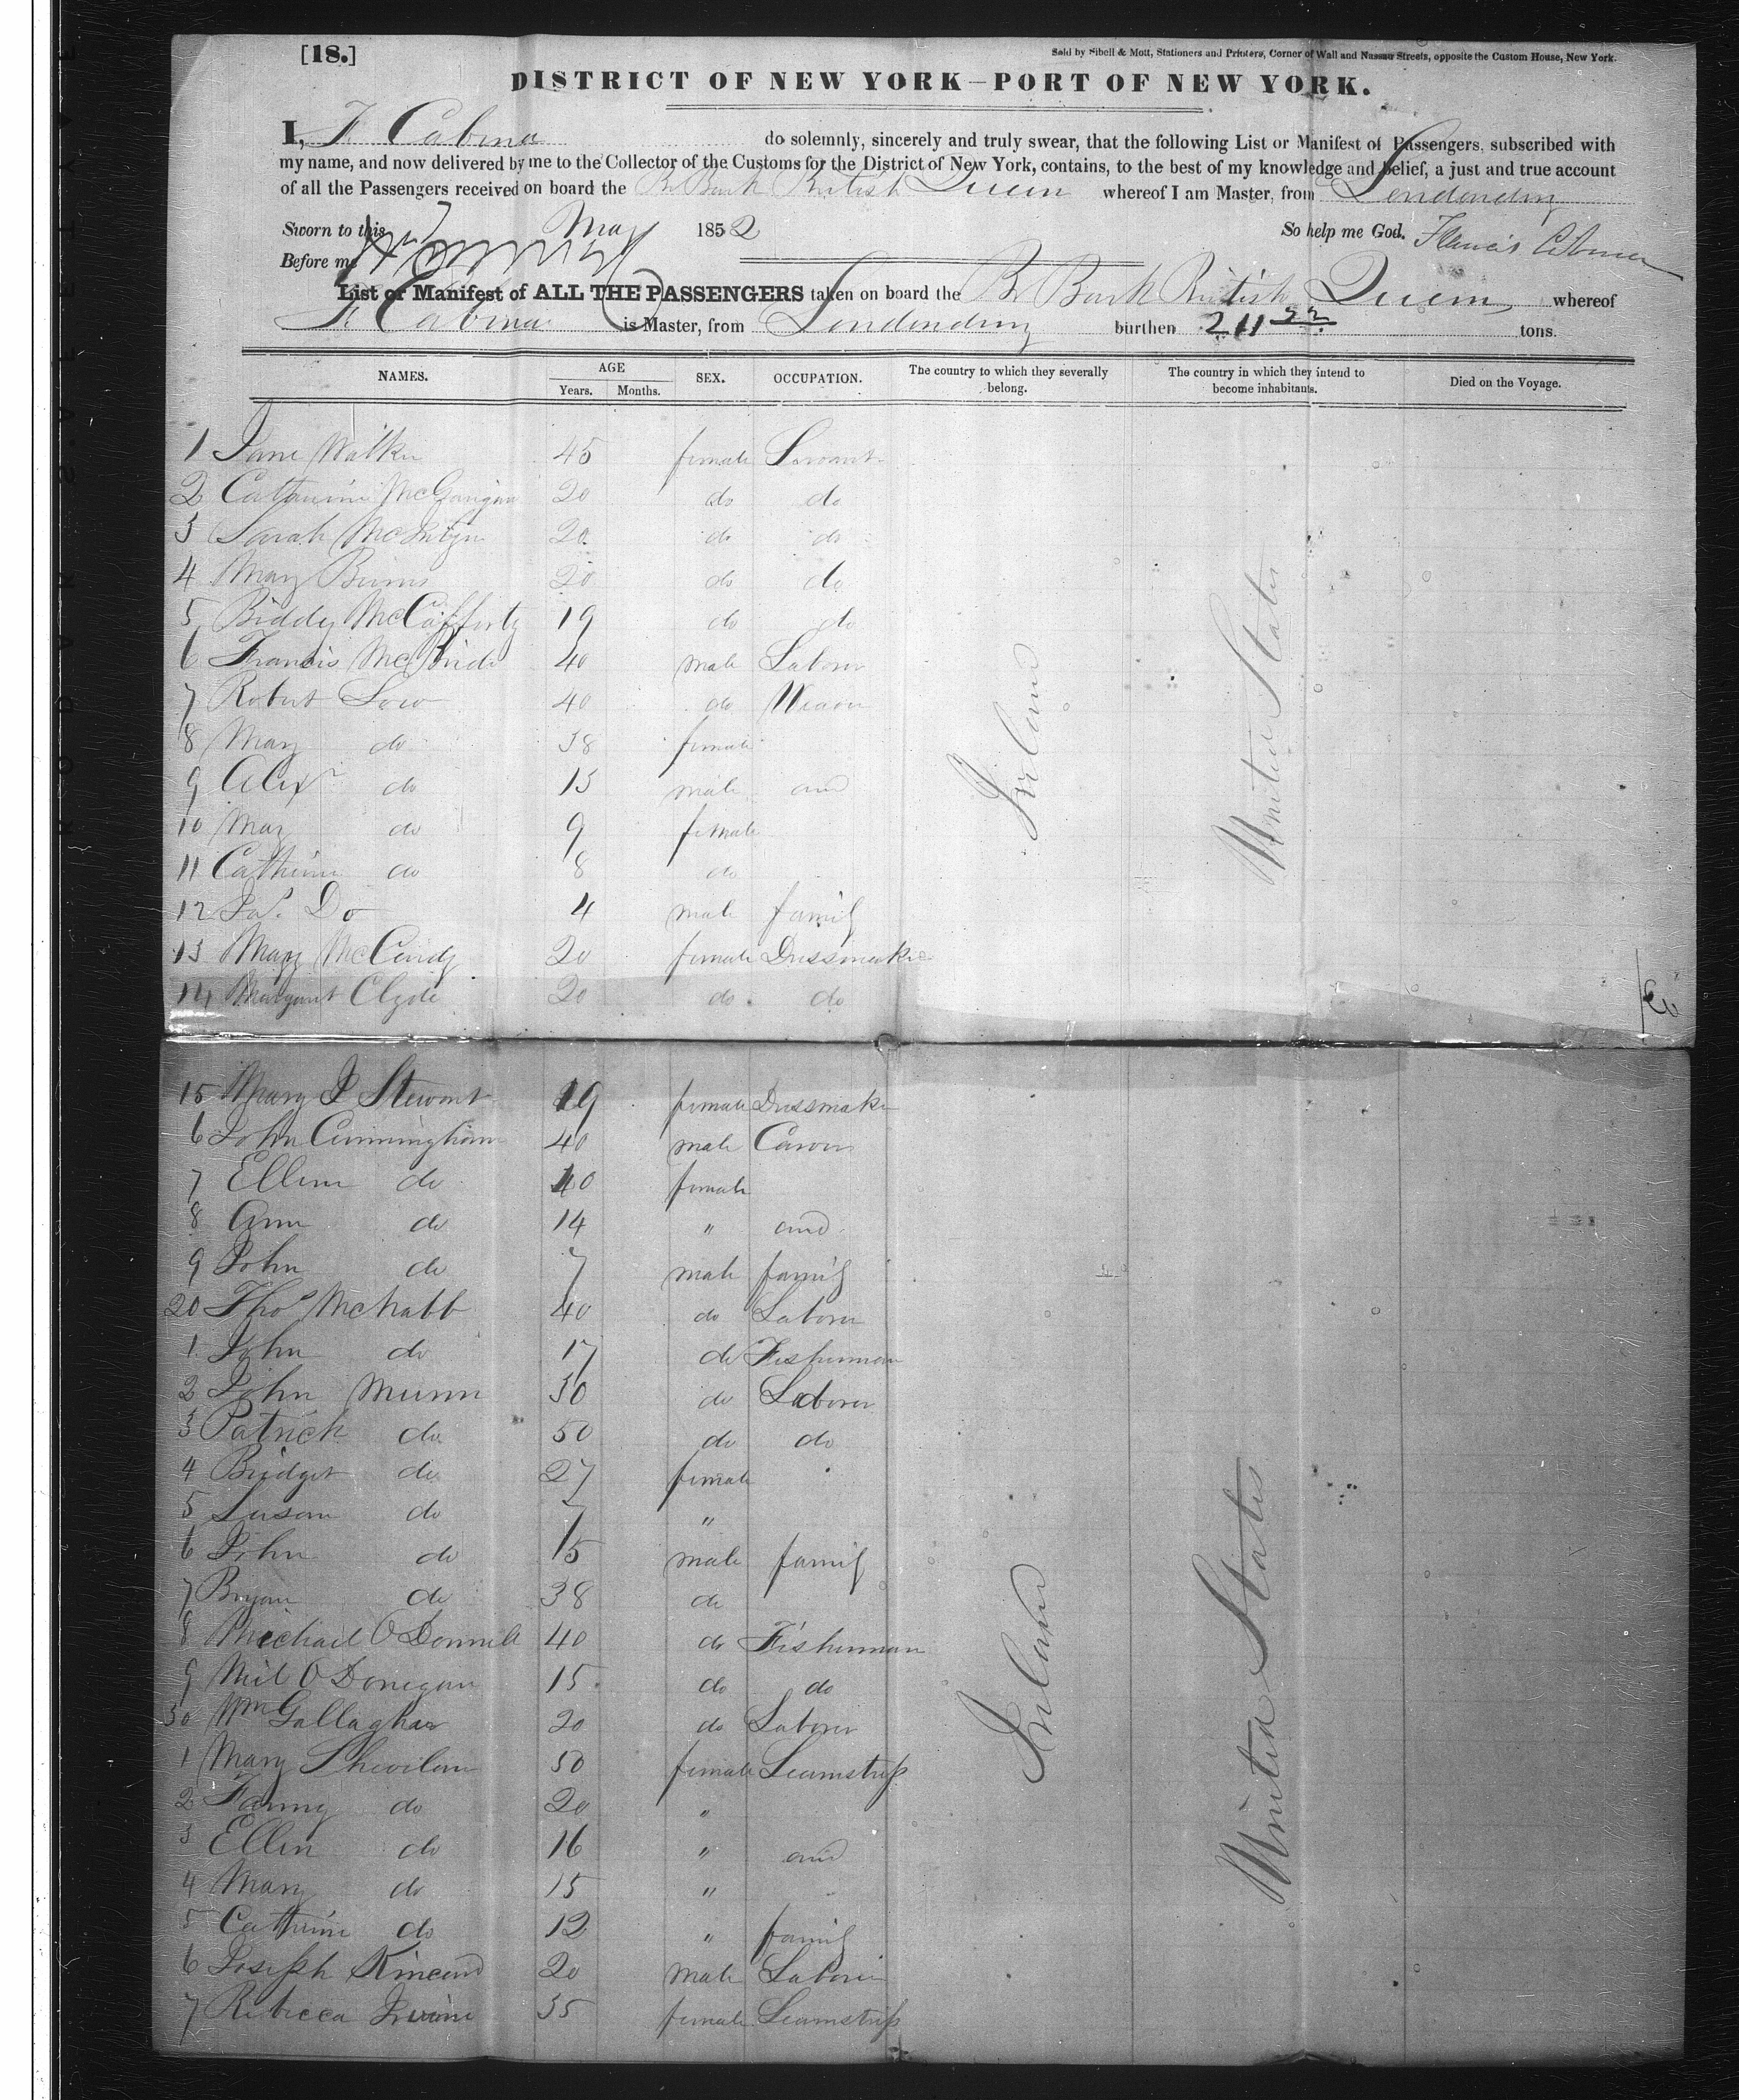 [18.]
Sold by Sibell & Mott, Stationers and Printers, Corner of Wall and Nassau Streets, opposite the Custom House, New York.
DISTRICT OF NEW YORK—PORT OF NEW YORK.
I, F. do solemnly, sincerely and truly swear, that the following List or Manifest of Passengers, subscribed with
my name, and now delivered by me to the Collector of the Customs for the District of New York, contains, to the best of my knowledge and belief, a just and true account
of all the Passengers received on board the Br Bark British Queen whereof I am Master, from Londonderry
Sworn to this May 1852 So help me God. Francis
Before me
List or Manifest of ALL THE PASSENGERS taken on board the Br Bark British Queen whereof
F. is Master, from Londonderry burthen 211 tons.
NAMES. AGE Years. Months. SEX. OCCUPATION. The country to which they severally belong. The country in which they intend to become inhabitants. Died on the Voyage.
1 Jane Walker 45 female Servant
2 Catherine McGonigan 20 do do
3 Sarah McIntyre 20 do do
4 Mary Burns 20 do do
5 Biddy McCafferty 19 do do
6 Francis McBride 40 male Laborer
7 Robert Low 40 do Weaver
8 Mary do 38 female
9 Alexr do 13 male and
10 Mary do 9 female
11 Catherine do 8 do
12 Jas. Do 4 male family
13 Mary McCurdy 20 female Dressmaker
14 Margaret Clyde 20 do do
Ireland
United States
15 Mary J Stewart 19 female Dressmaker
6 John Cunningham 40 male Carver
7 Ellen do 40 female
8 Ann do 14 " and
9 John do 7 male family
20 Thos McNabb 40 do Laborer
1 John do 17 do Fisherman
2 John Munn 30 do Laborer
3 Patrick do 50 do do
4 Bridget do 27 female
5 Susan do 7 "
6 John do 15 male family
7 Bryan do 38 do
8 Michael O Donnell 40 do Fisherman
9 Neil O Donegan 15 do do
30 Wm Gallagher 20 do Laborer
1 Mary 50 female Seamstress
2 Fanny do 20 "
3 Ellen do 16 " and
4 Mary do 15 "
5 Catherine do 12 " family
6 Joseph Kincaid 20 male Laborer
7 Rebecca Irwine 35 female Seamstress
Ireland
United States